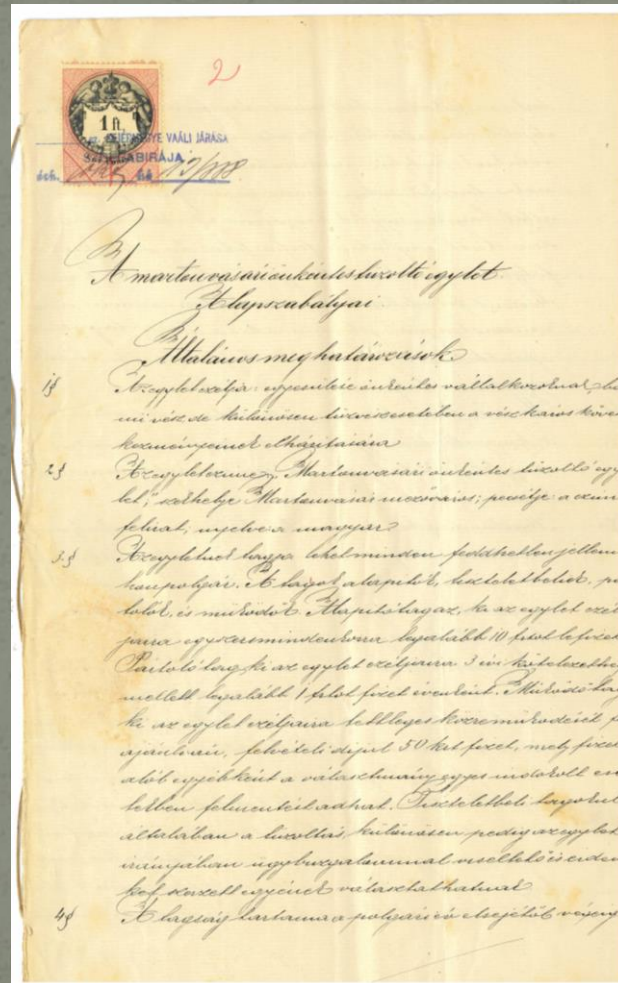 2
1 ft.
FEJÉRMEGYE VAÁLI JÁRÁSA
SZOLGABIRÁJA
éch. 188
A martonvásári önkéntes tűzoltó egylet
Alapszabályai
Általános meghatározások
1§ Az egylet czélja: egyesitése önkéntes vállalkozóknak,
mi vész, de különösen tűzvész esetében a vész káros követ
kezményeinek elháritására
2§ Az egylet czime: Martonvásári önkéntes tűzoltó egy
let", székhelye Martonvásár mezőváros; pecsétje: a czim
felirat, nyelve: a magyar
3.§ Az egyletnek tagja lehet minden feddhetlen jellem
honpolgár. A tagok, alapitók, tiszteletbeliek, pá
tolók, és működők. Alapitó tag az, ki az egylet czél
jaira egyszersmindenkorra legalább 10 frtot lefizet
Pártoló tag ki az egylet czéljaira 3 évi kötelezettség
mellett legalább 1 frtot fizet évenként. Működő tag
ki az egylet czéljaira tettleges közreműködését f
ajánlván, felvételi dijul 50 krt fizet, mely fizet
alól egyébként a választmány egyes indokolt ese
tekben felmentést adhat. Tiszteletbeli tagokul
általában a tűzoltás, különösen pedig az egylet
irányában ügybuzgalommal viseltető és érdem
ket szerzett egyének választathatnak
4§ A tagság tartama a polgári év elsejétől végéig